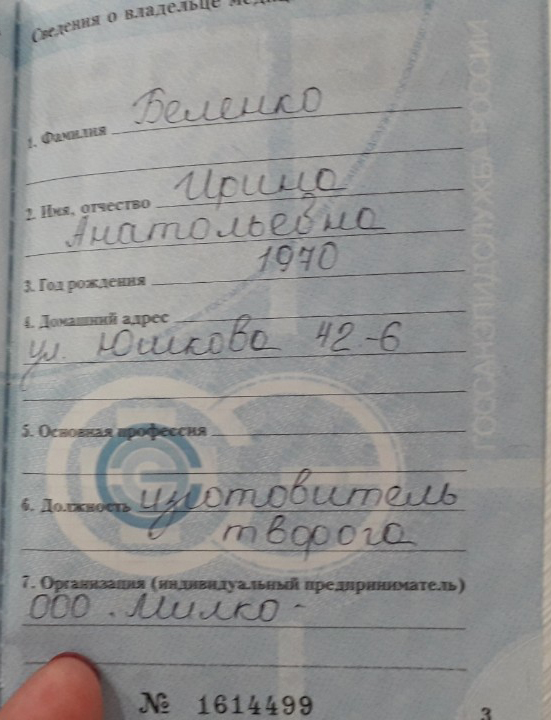 Сведения о владельце медиц
1. Фамилия Беленко
2. Имя, отчество Ирина
Анатольевна
3. Год рождения 1970
4. Домашний адрес
ул. Юшкова 42-6
5. Основная профессия
6. Должность изготовитель
творога
7. Организация (индивидуальный предприниматель)
ООО "Милко"
№ 1614499
3
ГОССАНЭПИДСЛУЖБА РОССИИ